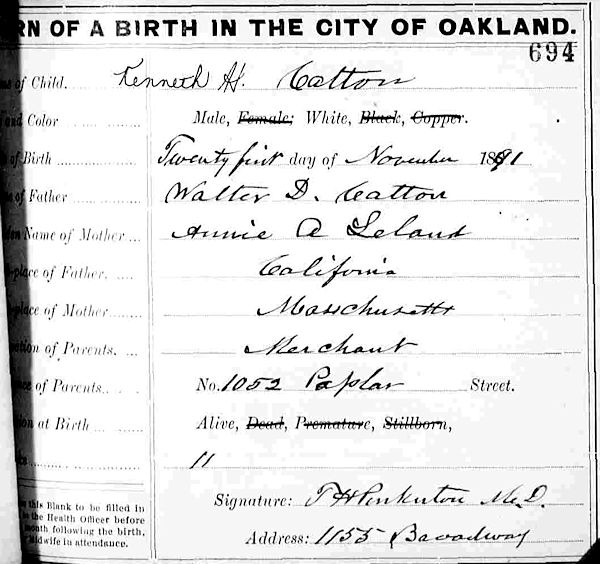 RN OF A BIRTH IN THE CITY OF OAKLAND.
694
me of Child. Kenneth H. Catton
and Color Male, Female; White, Black, Copper.
of Birth Twenty first day of November 1891
me of Father Walter D. Catton
den Name of Mother... Annie A Leland
place of Father. California
place of Mother Masschusetts
ation of Parents. Merchant
ce of Parents. No. 1052 Poplar Street.
ion at Birth Alive, Dead, Premature, Stillborn,
ks 11
this Blank to be filled in
the Health Officer before
month following the birth,
Midwife in attendance.
Signature: T H Pinkerton M.D.
Address: 1155 Broadway